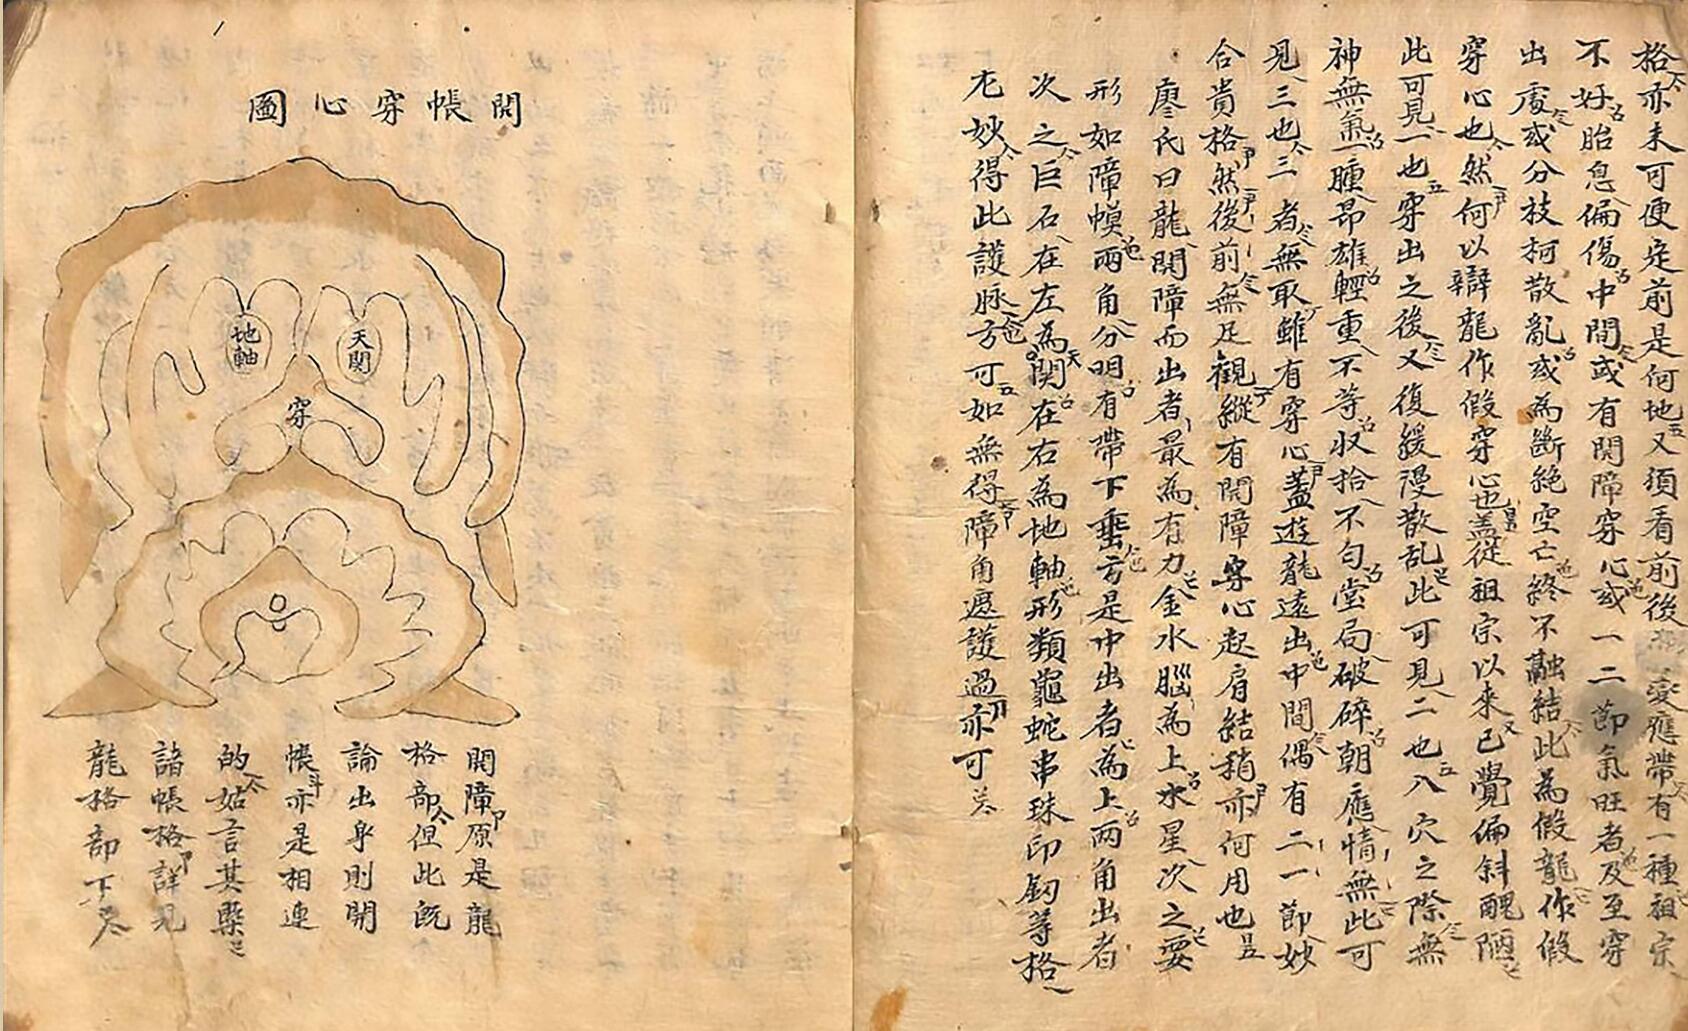 格亦未可便定前是何地又須看前後変應帶有一種祖宗
不好胎息偏傷中間或有開障穿心或一二節氣旺者及至穿
出處或分枝柯散亂或為斷絕空亡終不融結此為假龍作假
穿心也然何以辯龍作假穿心也盖從祖宗以來已覺偏斜醜陋
此可見一也穿出之後又復緩漫散乱此可見二也入穴之際無
神無氣一腫昂雄輕重不等収拾不勻堂局破碎朝應情無此可
見三也三者無取雖有穿心盖遊龍遠出中間偶有二一節妙
合貴格然後前無足觀縱有開障穿心起肩結稍亦何用也
廖氏曰龍開障而出者最為有力金水腦為上水星次之要
形如障幙兩角分明有帶下垂方是中出者為上两角出者
次之巨石在左為天関在右為地軸形類龜蛇串珠印釖等格
尤妙得此護脉方可如無得障角遮護過亦可
開帳穿心圖
天関
地軸
穿
開障原是龍
格部但此旣
論出身則開
帳亦是相連
的姑言其槩
諸帳格詳見
龍格部下